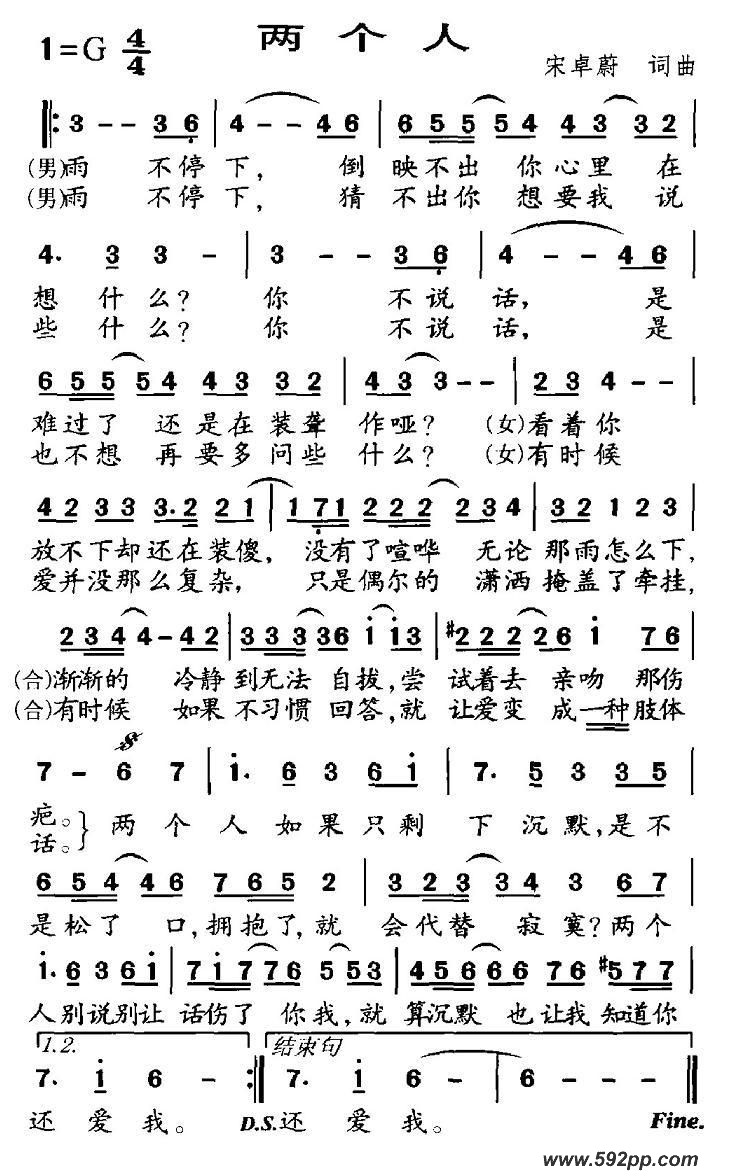 两个人
1=G 4/4
宋卓蔚 词曲
3 - - 3 6 | 4 - - 4 6 | 6 5 5 5 4 4 3 3 2 |
(男)雨 不停下， 倒 映不出 你心里 在
(男)雨 不停下， 猜 不出你 想要我 说
4. 3 3 - | 3 - - 3 6 | 4 - - 4 6 |
想 什么? 你 不说话， 是
些 什么? 你 不说话， 是
6 5 5 5 4 4 3 3 2 | 4 3 3 - - | 2 3 4 - - |
难过了 还是在装聋 作哑? (女)看着你
也不想 再要多问些 什么? (女)有时候
4 2 3 3 3. 2 2 1 | 1 7 1 2 2 2 2 3 4 | 3 2 1 2 3 |
放不下却还在装傻， 没有了喧哗 无论那雨怎么下，
爱并没那么复杂， 只是偶尔的 潇洒掩盖了牵挂，
2 3 4 4 - 4 2 | 3 3 3 3 6 i i 3 | #2 2 2 2 6 i 7 6 |
(合)渐渐的 冷静到无法 自拔，尝 试着去 亲吻 那伤
(合)有时候 如果不习惯 回答，就 让爱变 成一种肢体
7 - 6 7 | i. 6 3 6 i | 7. 5 3 3 5 |
疤。 两个人如果只剩 下沉默，是不
话。
6 5 4 4 6 7 6 5 2 | 3 2 3 3 4 3 6 7 |
是松了 口，拥抱了，就 会代替 寂寞?两个
i. 6 3 6 i | 7 i 7 7 6 5 5 3 | 4 5 6 6 6 7 6 #5 7 7 |
人别说别让 话伤了 你我，就 算沉默 也让我知道你
1.2. 结束句
7. i 6 - :‖ 7. i 6 - | 6 - - - ‖
还 爱 我。 D.S.还 爱 我。 Fine.
www.592pp.com